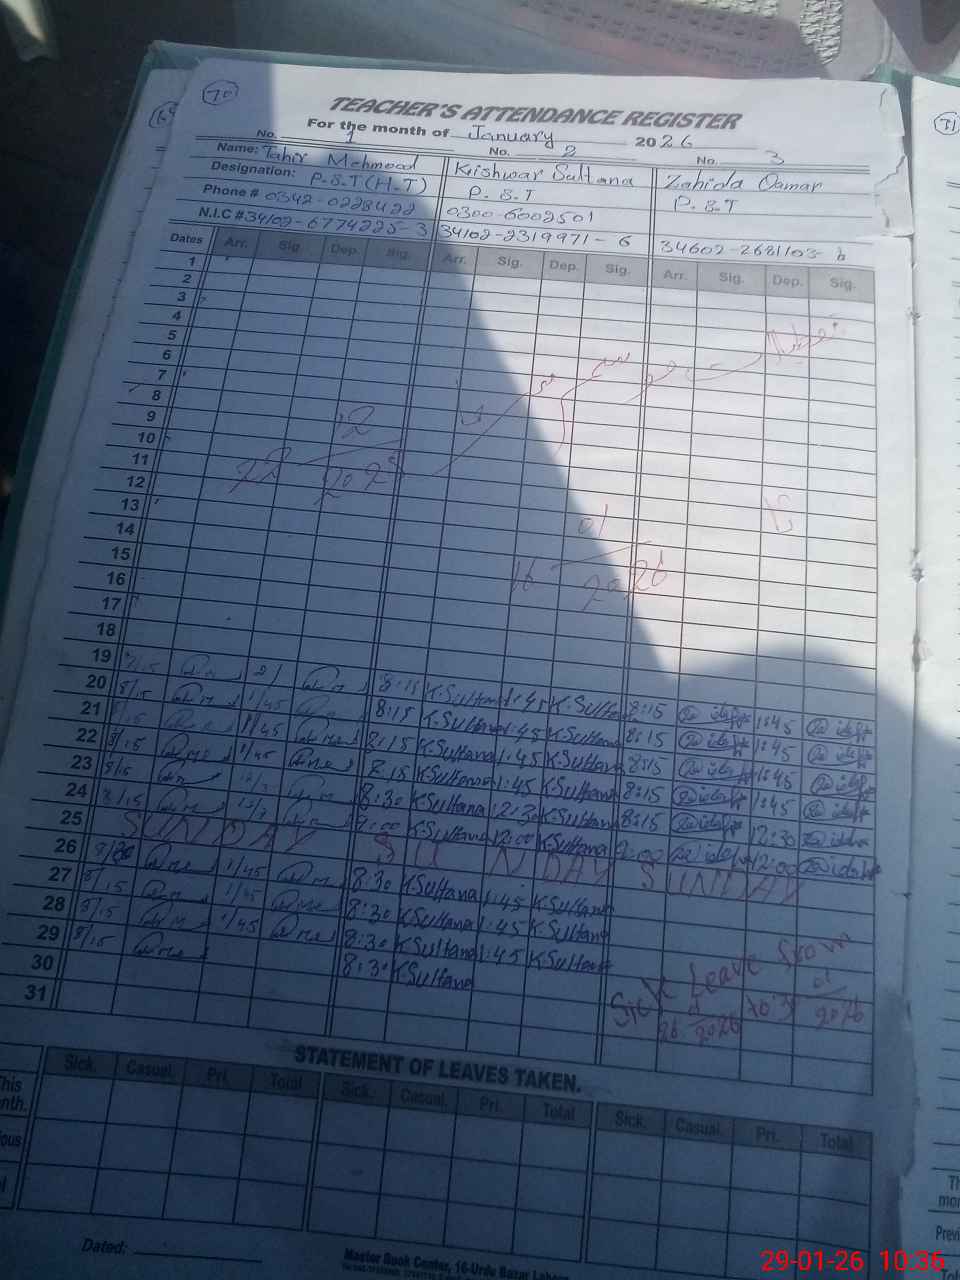 70
TEACHER'S ATTENDANCE REGISTER
For the month of January 2026
No. 1 No. 2 No. 3
Name: Tahir Mehmood Kishwar Sultana Zahida Qamar
Designation: P.S.T (H.T) P.S.T P.S.T
Phone # 0342-0228422 0300-6002501
N.I.C # 34102-6774225-3 34102-2319971-6 34602-2681103-6
Dates Arr. Sig. Dep. Sig. Arr. Sig. Dep. Sig. Arr. Sig. Dep. Sig.
1
2
3
4
5
6
7
8
9
10
11
12
13
14
15
16
17
18
19
20 8:15 K.Sultana 1:45 K.Sultana 8:15 1:45
21 8/15 1/45 8:15 K.Sultana 1:45 K.Sultana 8:15 1:45
22 8/15 1/45 8:15 K.Sultana 1:45 K.Sultana 8:15 1:45
23 8/15 1/45 8:15 K.Sultana 1:45 K.Sultana 8:15 1:45
24 8/15 8:30 K.Sultana 12:30 K.Sultana 8:15 12:30
25 9:00 K.Sultana 12:00 K.Sultana 9:00 12:00
SUNDAY SUNDAY SUNDAY
26 1/45 8:30 K.Sultana 1:45 K.Sultana
27 8/15 1/45 8:30 K.Sultana 1:45 K.Sultana
28 8/15 1/45 8:30 K.Sultana 1:45 K.Sultana
29 8/15 8:30 K.Sultana
30
31
22 12 2025
16 01 2026
Sick Leave from
26 01 2026 to 31 01 2026
STATEMENT OF LEAVES TAKEN.
Sick. Casual. Pri. Total Sick. Casual. Pri. Total Sick. Casual. Pri. Total
Dated:
Master Book Center, 16-Urdu Bazar Lahore
71
29-01-26 10:36